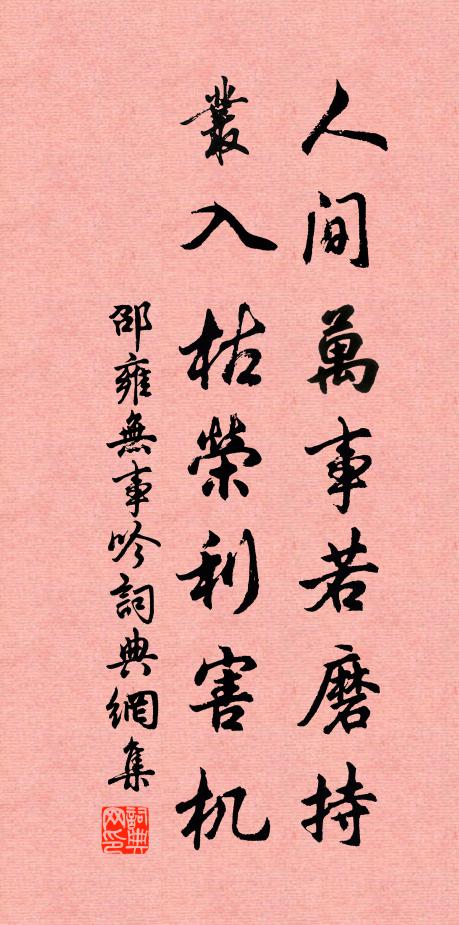 人间萬事若磨持
叢入枯榮利害机
邵雍無事吟詞典網集
詞典网印